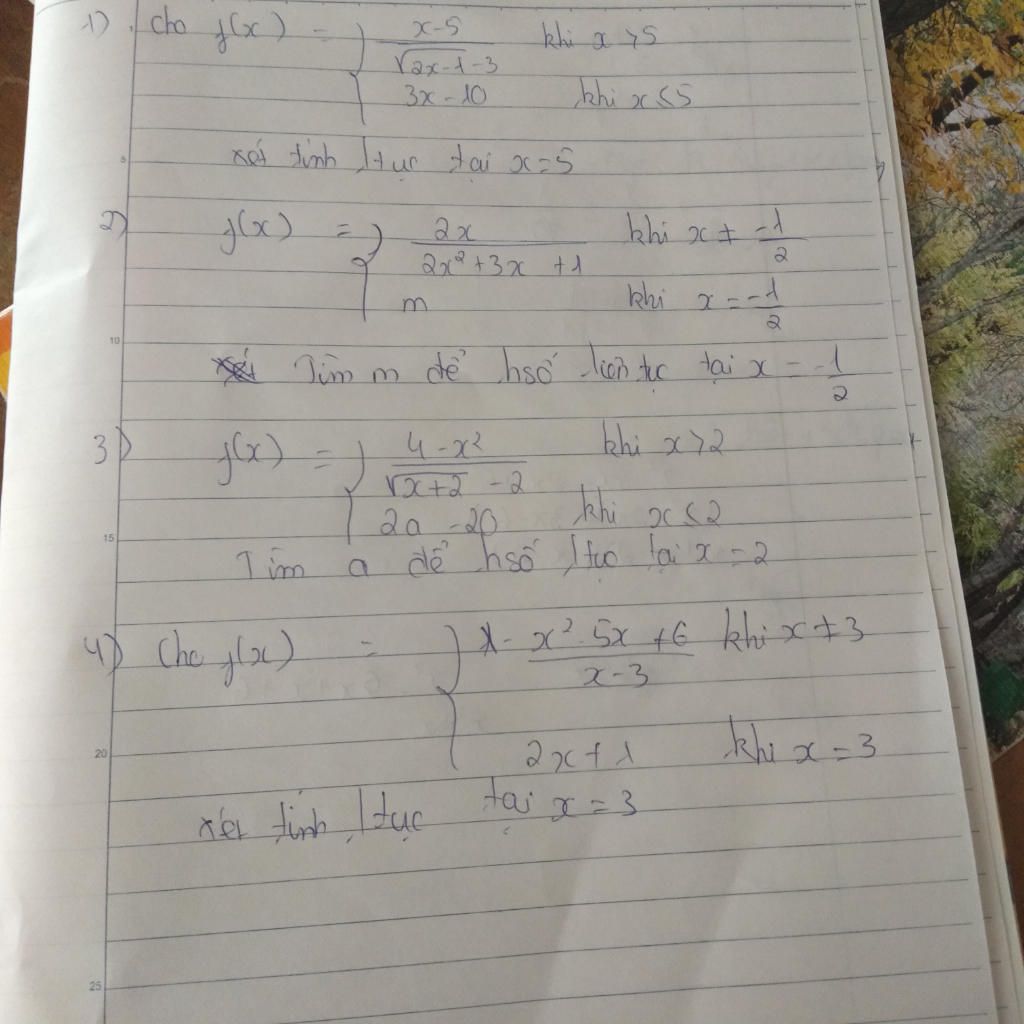 1) Cho f(x) = { x-5 / √2x-1 -3 khi x > 5
3x - 10 khi x ≤ 5
5
xét tính ltục tại x = 5
2) f(x) = { 2x / 2x² + 3x + 1 khi x ≠ -1/2
m khi x = -1/2
10
Tìm m để hsố liên tục tại x = -1/2
3) f(x) = { 4 - x² / √x+2 - 2 khi x > 2
2a - 20 khi x ≤ 2
15
Tìm a để hsố ltục tại x = 2
4) Cho f(x) = { 1 - x² - 5x + 6 / x - 3 khi x ≠ 3
20
2x + 1 khi x = 3
xét tính ltục tại x = 3
25